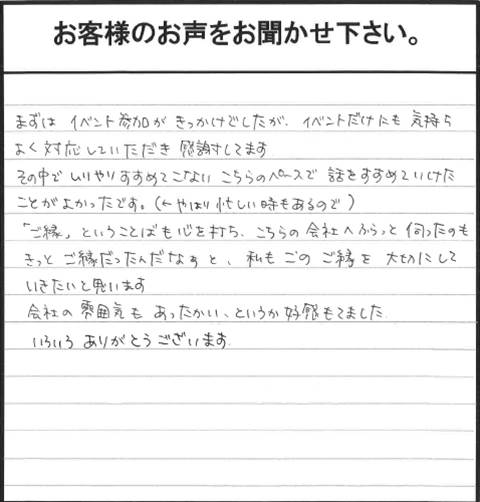 お客様のお声をお聞かせ下さい。
まずは イベント参加が きっかけでしたが、イベントだけにも 気持ち
よく 対応していただき 感謝してます
その中で ムリやりすすめてこない こちらのペースで 話をすすめていけた
ことがよかったです。(←やはり 忙しい時もあるので)
「ご縁」ということばも心を打ち、こちらの 会社へふらっと 伺ったのも
きっと ご縁だったんだなぁと、私も このご縁を 大切にして
いきたいと思います
会社の 雰囲気も あったかい、というか 好感もてました.
いろいろ ありがとうございます.